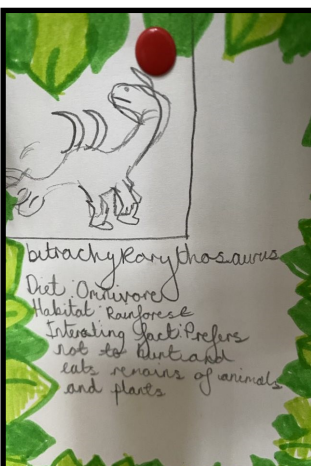 butrachykarythosaurus
Diet: Omnivore
Habitat: Rainforest
Interesting fact: Prefers
not to hunt and
eats remains of animals
and plants